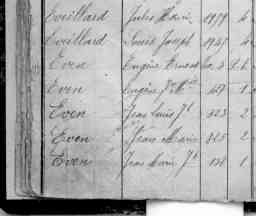 Eveillard Jules Marie 1979 4
Eveillard Louis Joseph 1947 4
Even Eugène Ernest
Even Eugène Jn Mie 1
Even Jean Louis Jh 323 2
Even Jean Marie 325 2
Even Jean Marie Jh 1